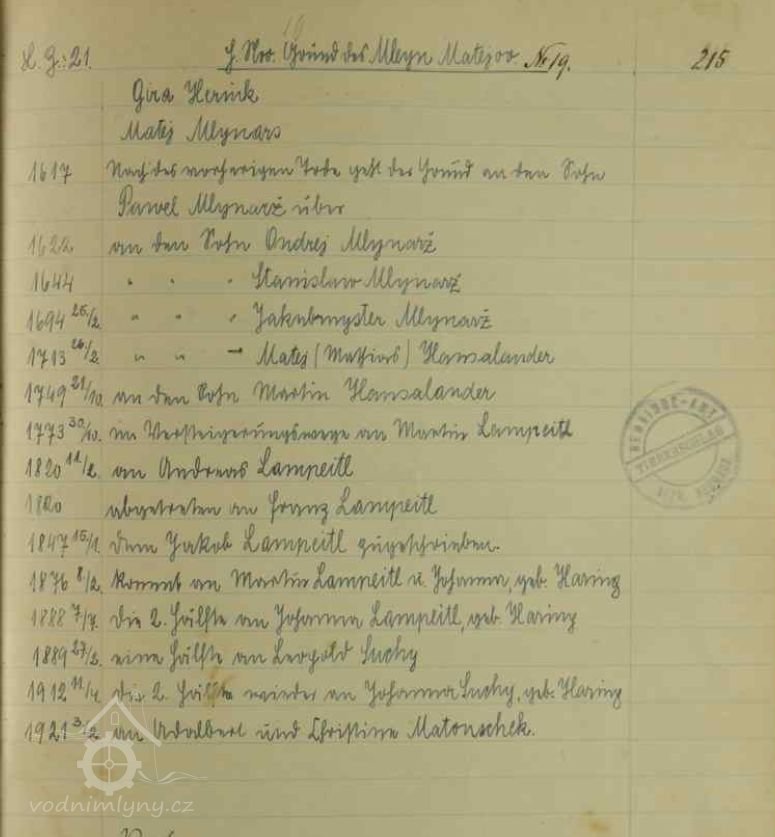 19
L. G.: 21. H. Nro. Grund des Mleyn Matejow No 19. 215
Gira Herink
Matej Mlynars
1617 Nach des vorherigen Tode geht der Grund an den Sohn
Pawel Mlynarž über
1622 an den Sohn Ondrej Mlynarž
1644 " " " Stanislaw Mlynarž
1694 25/2. " " " Jakubmyster Mlynarž
1713 26/2 " " – Matej (Mathias) Hansalander
1749 21/10. an den Sohn Martin Hansalander
1773 30/10. im Versteigerungswege an Martin Lampeitl
1820 11/2. an Andreas Lampeitl
1820 abgetreten an Franz Lampeitl
1847 15/1. dem Jakob Lampeitl zugeschrieben.
1876 8/2. kommt an Martin Lampeitl u. Johanna, geb. Haring
1888 7/7. die 2. Hälfte an Johanna Lampeitl, geb. Haring
1889 27/2. eine Hälfte an Leopold Suchy
1912 11/4. die 2. Hälfte wieder an Johanna Suchy, geb. Haring
1921 3/2 an Adalbert und Christine Matouschek.
GEMEINDE-AMT
THIERSCHLAG
vodnimlyny.cz